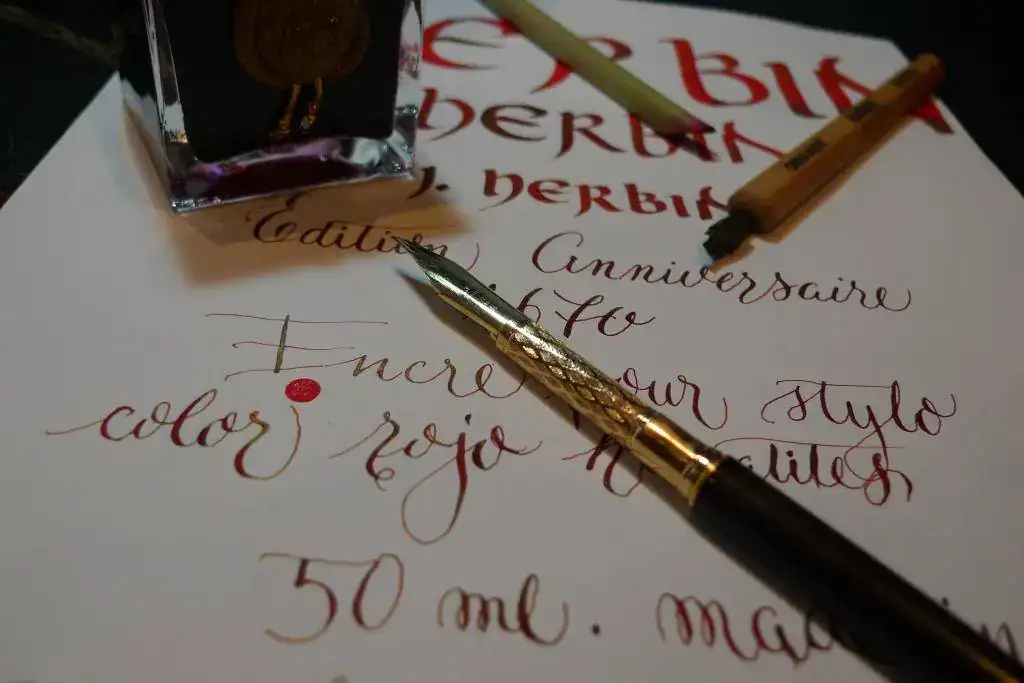 ERBIN
HERBIN
J. HERBIN
Edition Anniversaire
1670
Encre your stylo
color rojo h alites
50 ml. made in